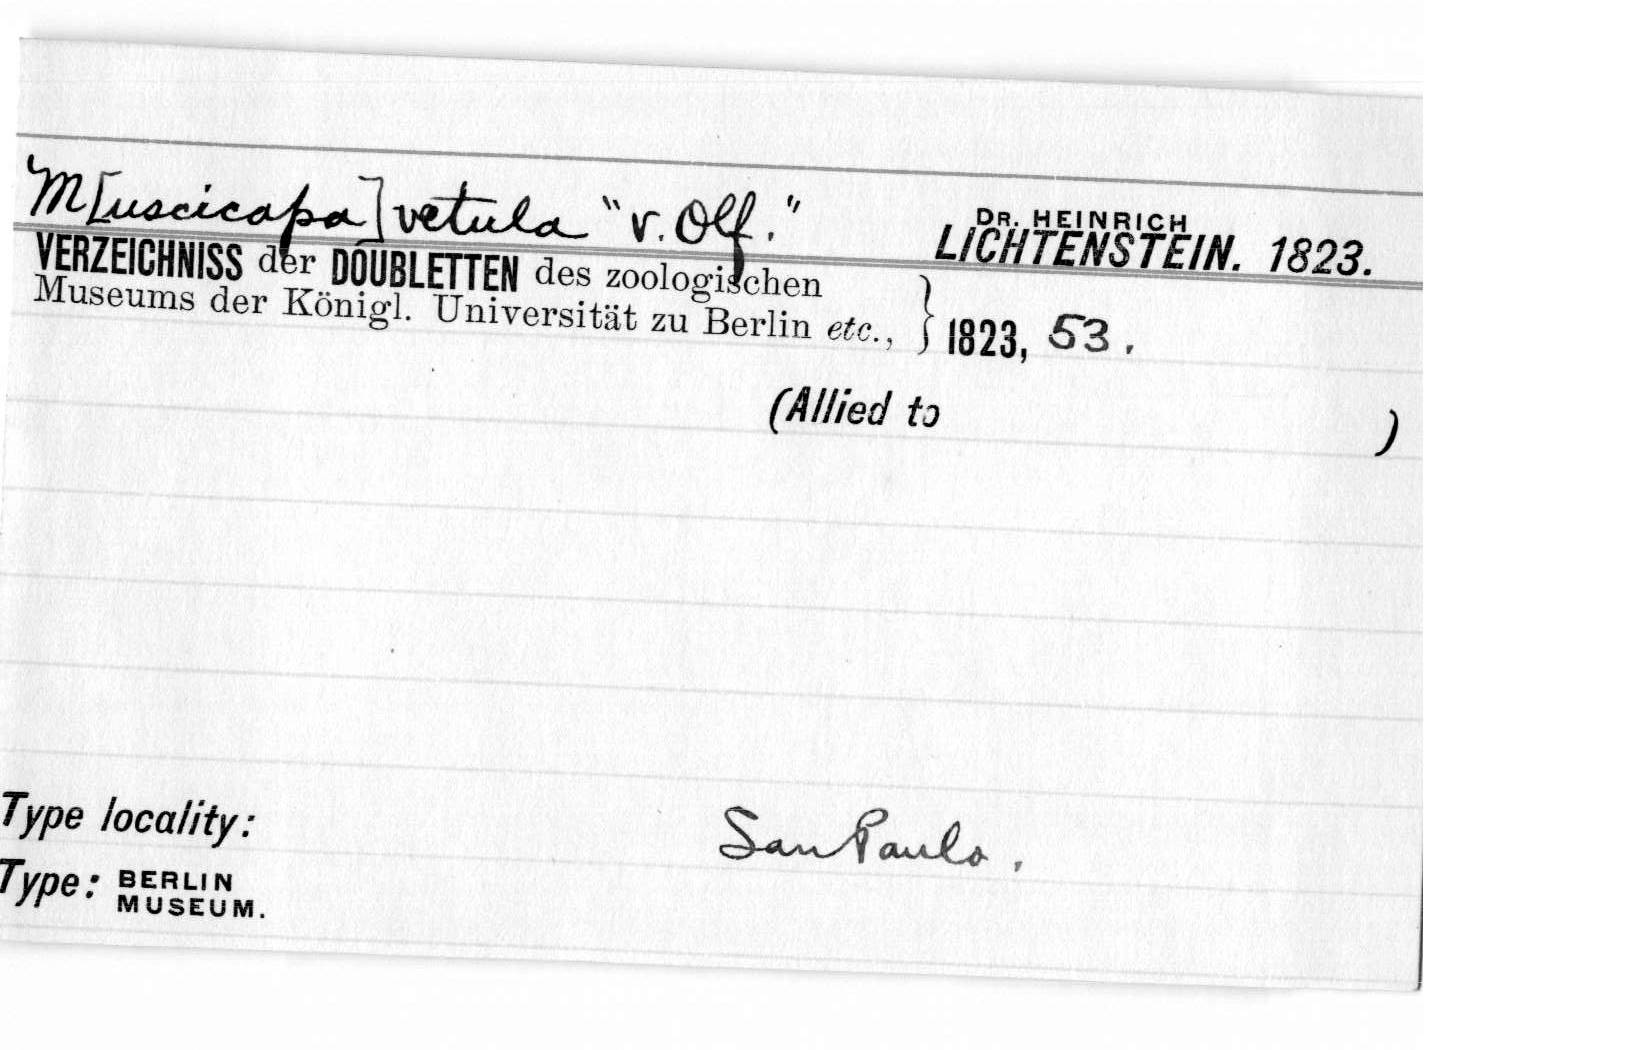 M[uscicapa] vetula "v. Olf."
DR. HEINRICH
LICHTENSTEIN. 1823.
VERZEICHNISS der DOUBLETTEN des zoologischen
Museums der Königl. Universität zu Berlin etc., } 1823, 53.
(Allied to )
Type locality: San Paulo.
Type: BERLIN
MUSEUM.